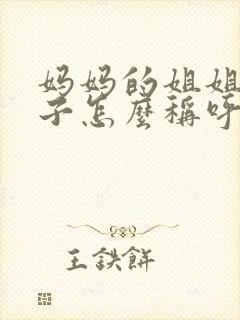 妈妈的姐姐
子怎麼稱呼
王鉄餅